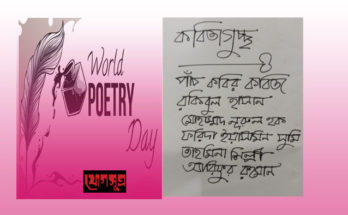 World
POETRY
Day
যোগসূত্র
কবিতাগুচ্ছ
৪
পাঁচ কবির কবিতা
রকিবুল হাসান
মোহাম্মদ নূরুল হক
ফরিদা ইয়াসমিন সুমি
তাহমিনা শিল্পী
আরিফুর রহমান